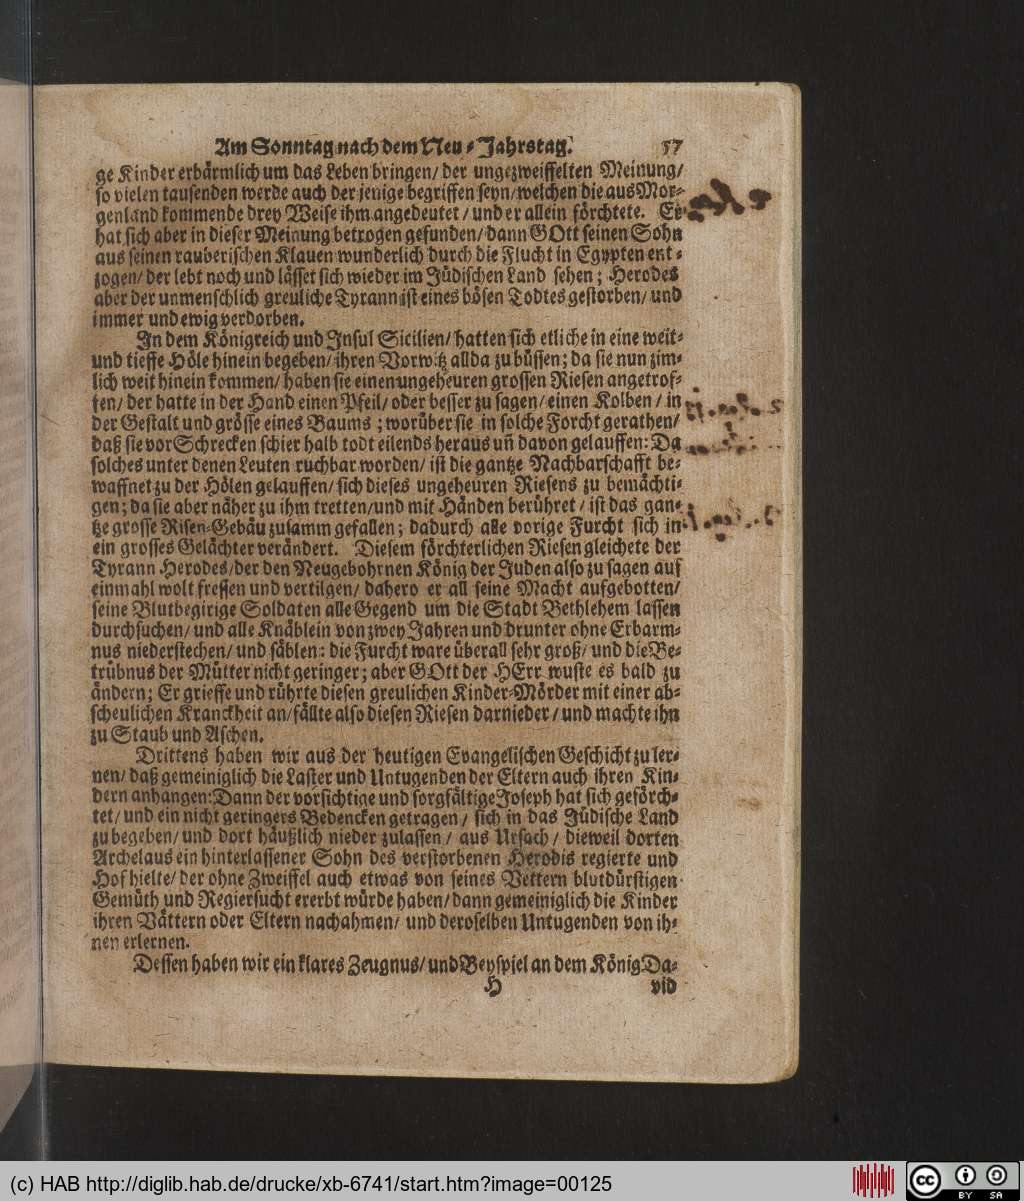 Am Sonntag nach dem Neu-Jahrstag. 57
ge Kinder erbärmlich um das Leben bringen/ der ungezweiffelten Meinung/
so vielen tausenden werde auch der jenige begriffen seyn/ welchen die aus Mor-
genland kommende drey Weise ihm angedeutet / und er allein förchtete. Er
hat sich aber in dieser Meinung betrogen gefunden/ dann GOtt seinen Sohn
aus seinen rauberischen Klauen wunderlich durch die Flucht in Egypten ent-
zogen/ der lebt noch und lässet sich wieder im Jüdischen Land sehen; Herodes
aber der unmenschlich greuliche Tyrann ist eines bösen Todtes gestorben/ und
immer und ewig verdorben.
In dem Königreich und Insul Sicilien/ hatten sich etliche in eine weit-
und tieffe Höle hinein begeben/ ihren Vorwitz allda zu büssen; da sie nun zim-
lich weit hinein kommen/ haben sie einen ungeheuren grossen Riesen angetrof-
fen/ der hatte in der Hand einen Pfeil/ oder besser zu sagen/ einen Kolben / in
der Gestalt und grösse eines Baums ; worüber sie in solche Forcht gerathen/
daß sie vor Schrecken schier halb todt eilends heraus uñ davon gelauffen: Da
solches unter denen Leuten ruchbar worden/ ist die gantze Nachbarschafft be-
waffnet zu der Hölen gelauffen/ sich dieses ungeheuren Riesens zu bemächti-
gen; da sie aber näher zu ihm tretten/ und mit Händen berühret / ist das gan-
tze grosse Risen-Gebäu zusamm gefallen; dadurch alle vorige Furcht sich in
ein grosses Gelächter verändert. Diesem förchterlichen Riesen gleichete der
Tyrann Herodes/ der den Neugebohrnen König der Juden also zu sagen auf
einmahl wolt fressen und vertilgen/ dahero er all seine Macht aufgebotten/
seine Blutbegirige Soldaten alle Gegend um die Stadt Bethlehem lassen
durchsuchen/ und alle Knäblein von zwey Jahren und drunter ohne Erbarm-
nus niederstechen/ und säblen: die Furcht ware überall sehr groß/ und die Be-
trübnus der Mütter nicht geringer; aber GOtt der HErr wuste es bald zu
ändern; Er grieffe und rührte diesen greulichen Kinder-Mörder mit einer ab-
scheulichen Kranckheit an/ fällte also diesen Riesen darnieder / und machte ihn
zu Staub und Aschen.
Drittens haben wir aus der heutigen Evangelischen Geschicht zu ler-
nen/ daß gemeiniglich die Laster und Untugenden der Eltern auch ihren Kin-
dern anhangen: Dann der vorsichtige und sorgfältige Joseph hat sich geförch-
tet/ und ein nicht geringers Bedencken getragen / sich in das Jüdische Land
zu begeben/ und dort häußlich nieder zulassen/ aus Ursach / dieweil dorten
Archelaus ein hinterlassener Sohn des verstorbenen Herodis regierte und
Hof hielte/ der ohne Zweiffel auch etwas von seines Vettern blutdürstigen
Gemüth und Regiersucht ererbt würde haben/ dann gemeiniglich die Kinder
ihren Vättern oder Eltern nachahmen/ und deroselben Untugenden von ih-
nen erlernen.
Dessen haben wir ein klares Zeugnus/ und Beyspiel an dem König Da-
H vid
(c) HAB http://diglib.hab.de/drucke/xb-6741/start.htm?image=00125
cc BY SA